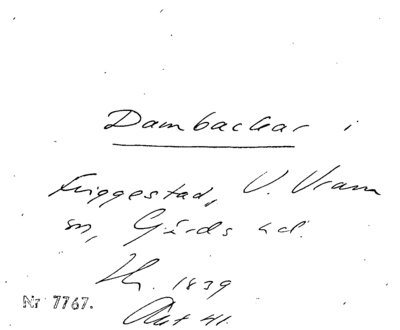 Dambackar i
Friggestad, V. Vram
sn, Gärds hd.
1839
Akt 41.
Nr 7767.